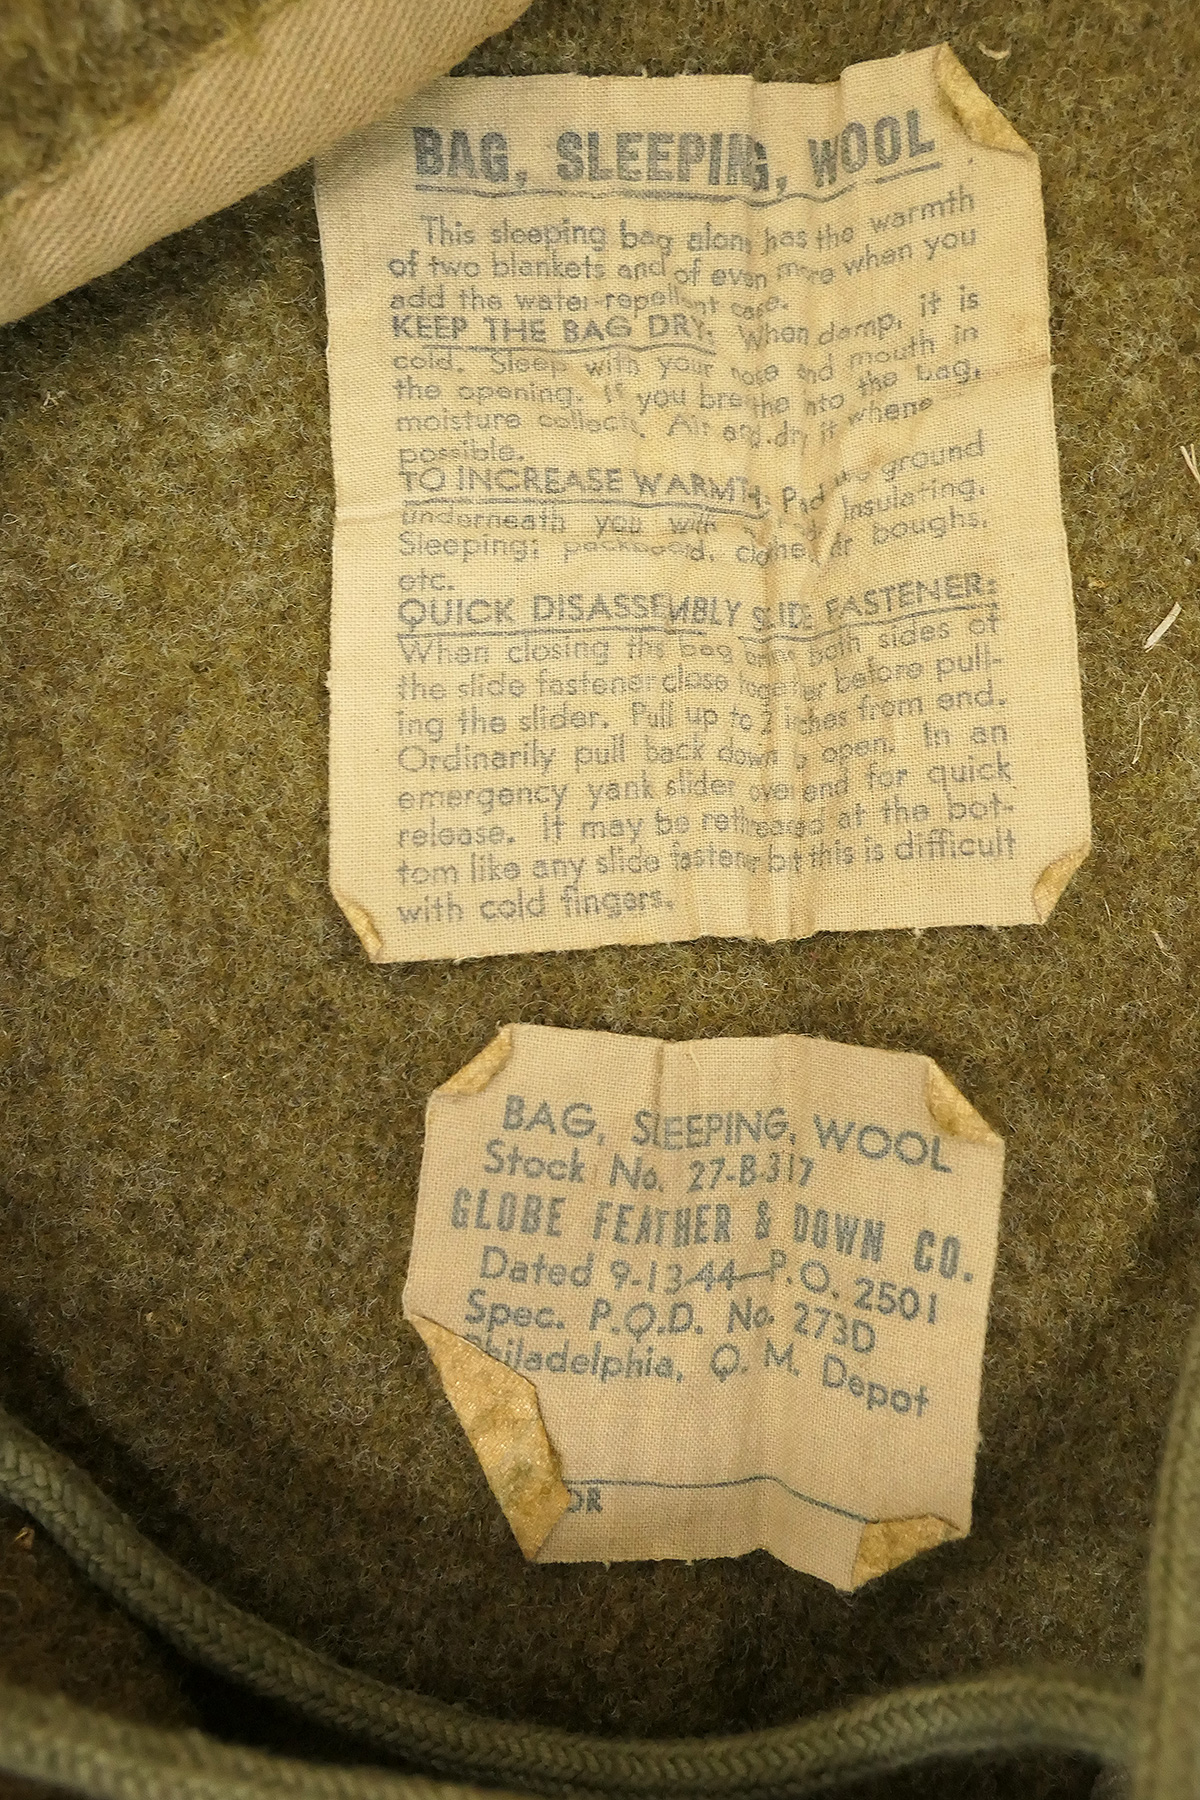 BAG, SLEEPING, WOOL
This sleeping bag alone has the warmth
of two blankets and of even more when you
add the water-repellent case.
KEEP THE BAG DRY. When damp, it is
cold. Sleep with your nose and mouth in
the opening. If you breathe into the bag,
moisture collects. Air and dry it whene
possible.
TO INCREASE WARMTH: Pad the ground
underneath you with Insulating,
Sleeping; packboard, clothes, or boughs,
etc.
QUICK DISASSEMBLY SLIDE FASTENER:
When closing the bag both sides of
the slide fastener close together before pull-
ing the slider. Pull up to 2 inches from end.
Ordinarily pull back down to open. In an
emergency yank slider over end for quick
release. It may be rethreaded at the bot-
tom like any slide fastener but this is difficult
with cold fingers.
BAG, SLEEPING, WOOL
Stock No. 27-B-317
GLOBE FEATHER & DOWN CO.
Dated 9-13-44—P.O. 2501
Spec. P.Q.D. No. 273D
Philadelphia, Q. M. Depot
OR